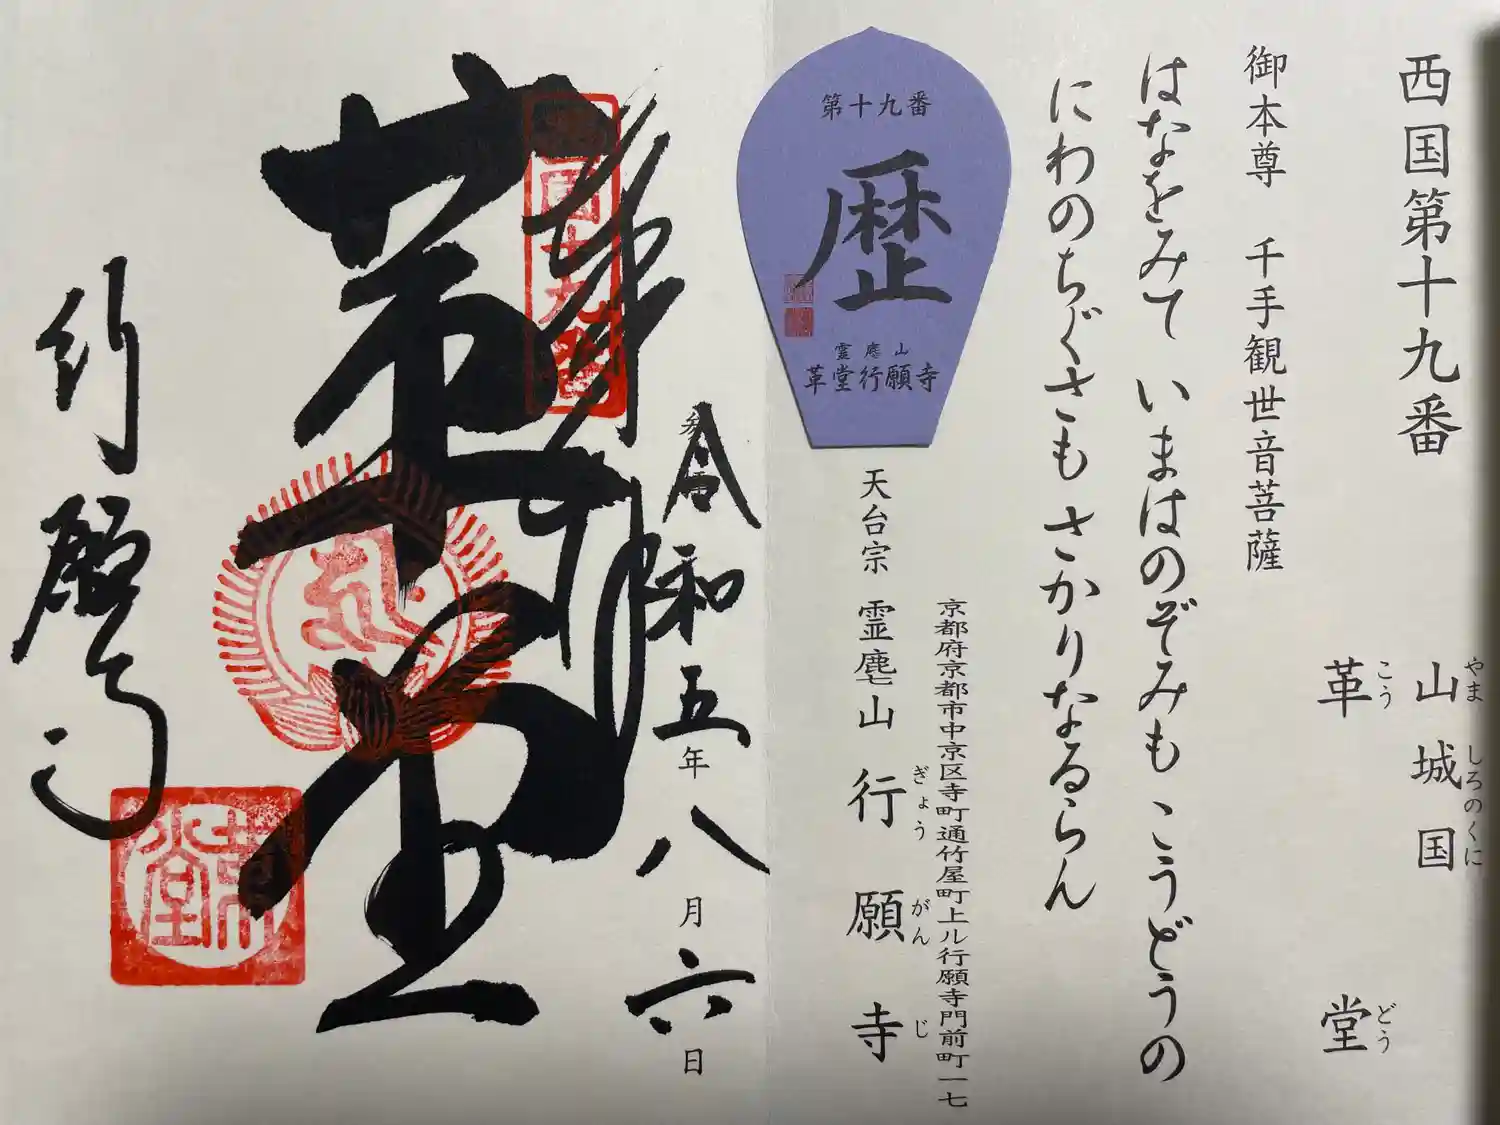 西国第十九番
山城国
やましろのくに
革堂
こうどう
御本尊 千手観世音菩薩
はなをみて いまはのぞみも こうどうの
にわのちぐさも さかりなるらん
京都府京都市中京区寺町通竹屋町上ル行願寺門前町一七
天台宗 霊麀山 行願寺
ぎょうがんじ
第十九番
歴
霊麀山
革堂行願寺
奉拝
令和五年八月六日
革堂
行願寺